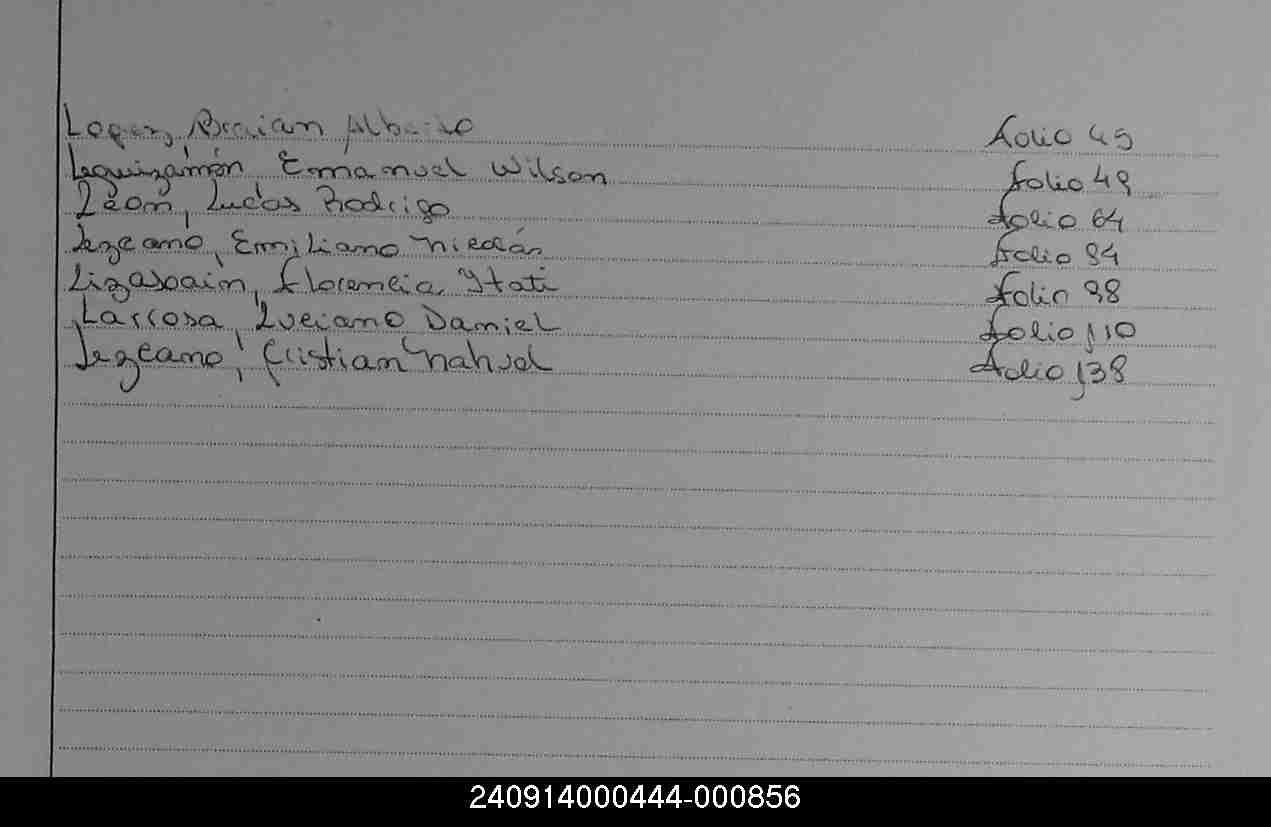 Lopez, Braian Alberto folio 45
Leguizamón Emanuel Wilson folio 49
León, Lucas Rodrigo folio 64
Lezcano, Emiliano Nicolás folio 94
Lizasoain, Florencia Itati folio 98
Larrosa, Luciano Daniel folio 110
Lezcano, Cristian Nahuel folio 138
240914000444-000856